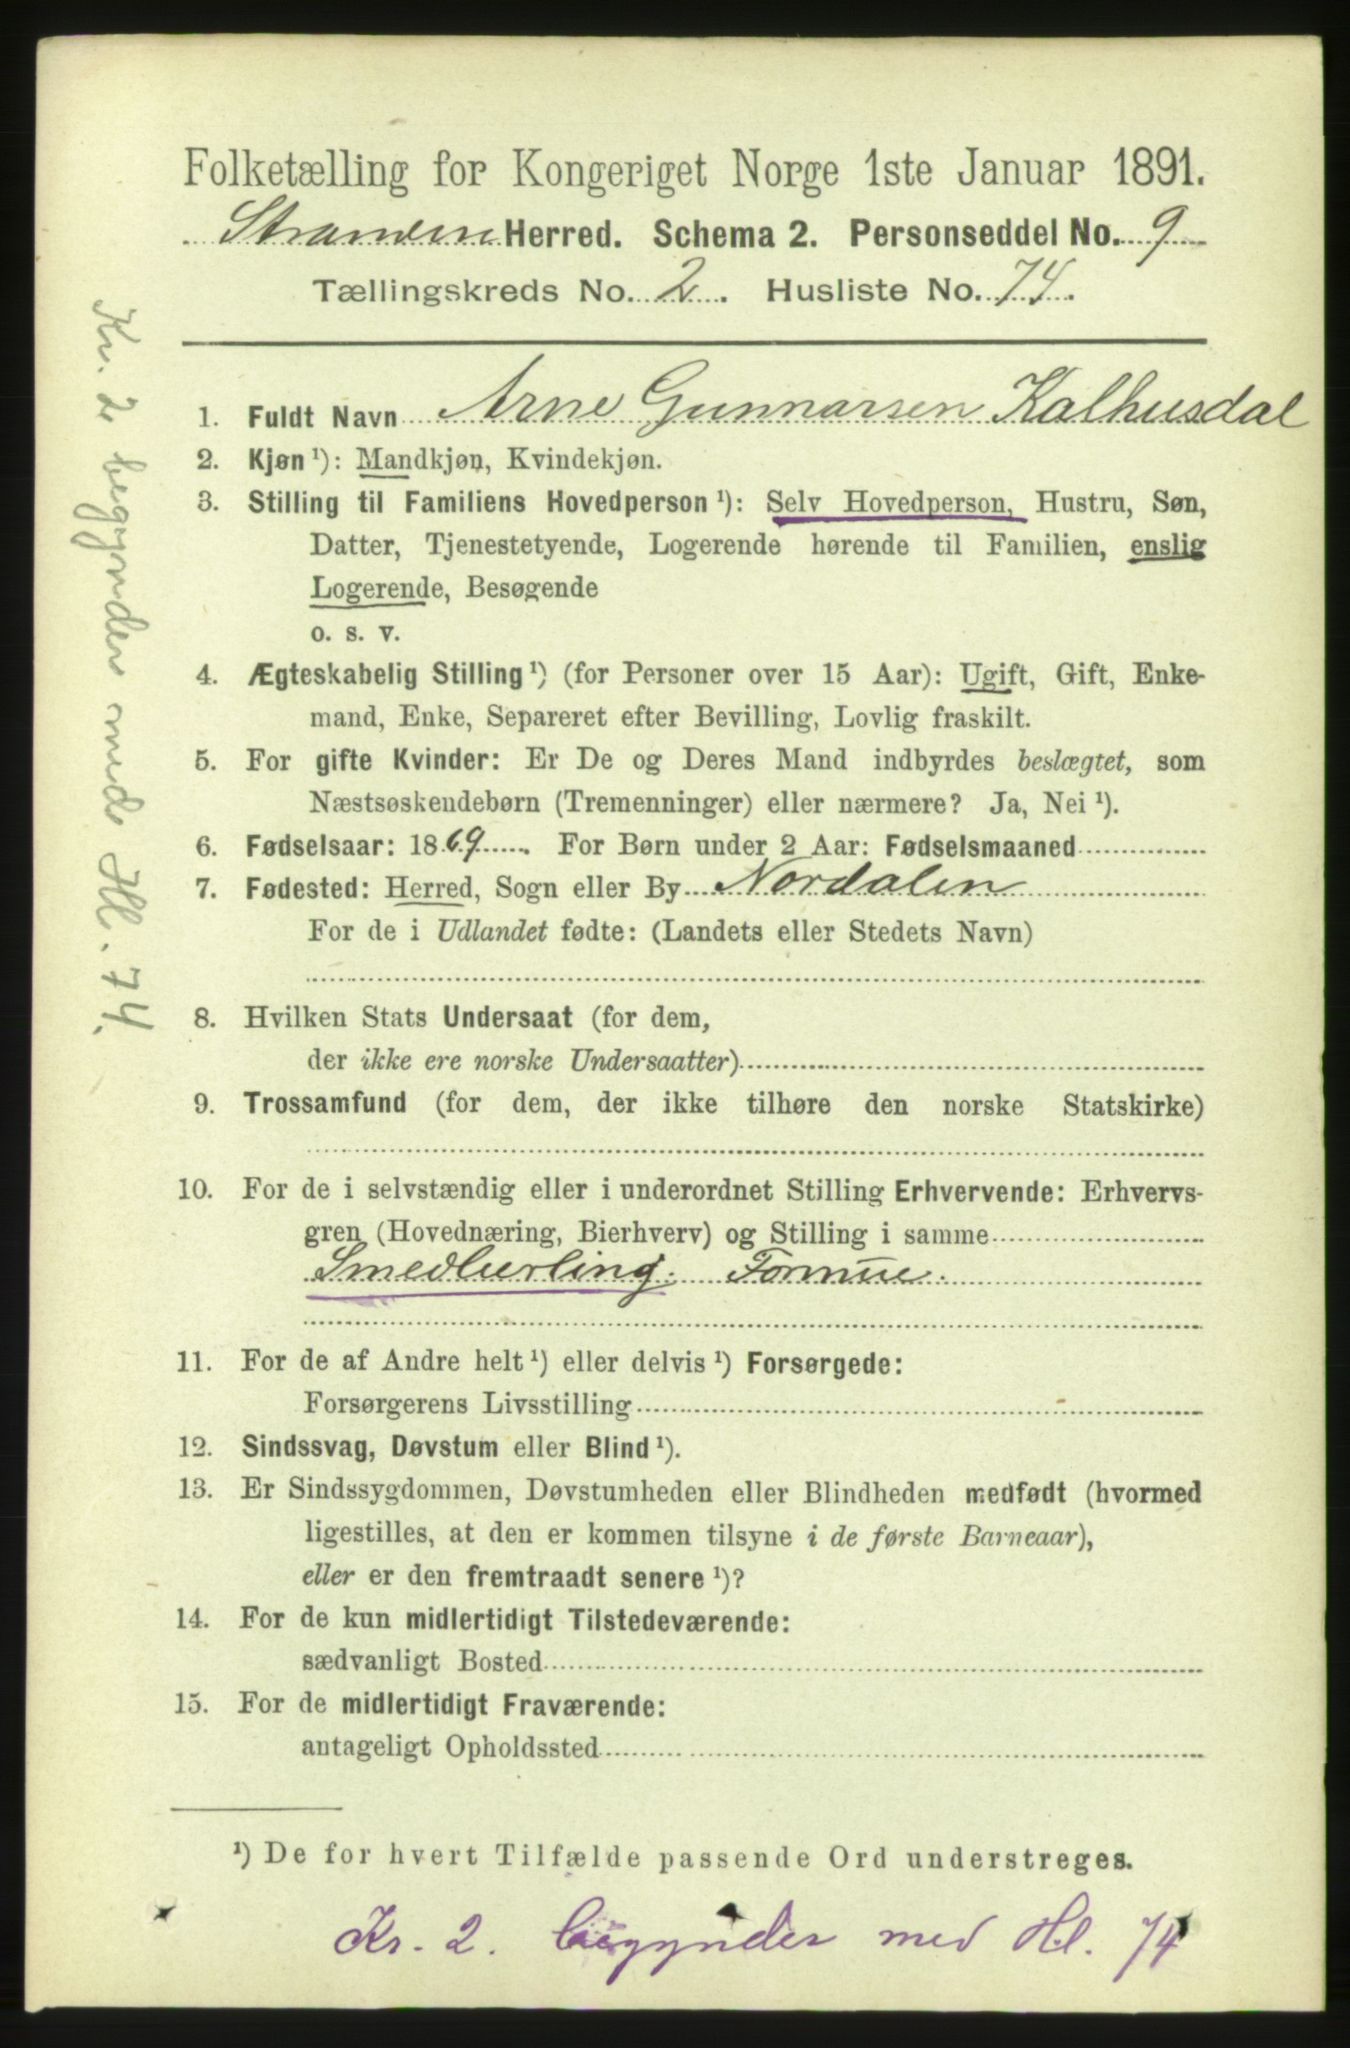 Folketælling for Kongeriget Norge 1ste Januar 1891.
Stranden Herred. Schema 2. Personseddel No. 9
Tællingskreds No. 2. Husliste No. 74.
1. Fuldt Navn Arne Gunnarsen Kalhusdal
2. Kjøn ¹): Mandkjøn, Kvindekjøn.
3. Stilling til Familiens Hovedperson ¹): Selv Hovedperson, Hustru, Søn,
Datter, Tjenestetyende, Logerende hørende til Familien, enslig
Logerende, Besøgende
o. s. v.
4. Ægteskabelig Stilling ¹) (for Personer over 15 Aar): Ugift, Gift, Enke-
mand, Enke, Separeret efter Bevilling, Lovlig fraskilt.
5. For gifte Kvinder: Er De og Deres Mand indbyrdes beslægtet, som
Næstsøskendebørn (Tremenninger) eller nærmere? Ja, Nei ¹).
6. Fødselsaar: 1869. For Børn under 2 Aar: Fødselsmaaned
7. Fødested: Herred, Sogn eller By Nordalen
For de i Udlandet fødte: (Landets eller Stedets Navn)
8. Hvilken Stats Undersaat (for dem,
der ikke ere norske Undersaatter)
9. Trossamfund (for dem, der ikke tilhøre den norske Statskirke)
10. For de i selvstændig eller i underordnet Stilling Erhvervende: Erhvervs-
gren (Hovednæring, Bierhverv) og Stilling i samme
Smedlærling. Formue.
11. For de af Andre helt ¹) eller delvis ¹) Forsørgede:
Forsørgerens Livsstilling
12. Sindssvag, Døvstum eller Blind ¹).
13. Er Sindssygdommen, Døvstumheden eller Blindheden medfødt (hvormed
ligestilles, at den er kommen tilsyne i de første Barneaar),
eller er den fremtraadt senere ¹)?
14. For de kun midlertidigt Tilstedeværende:
sædvanligt Bosted
15. For de midlertidigt Fraværende:
antageligt Opholdssted
¹) De for hvert Tilfælde passende Ord understreges.
Kr. 2. begynder med Hl. 74
Kr. 2 begynder med Hl. 74.